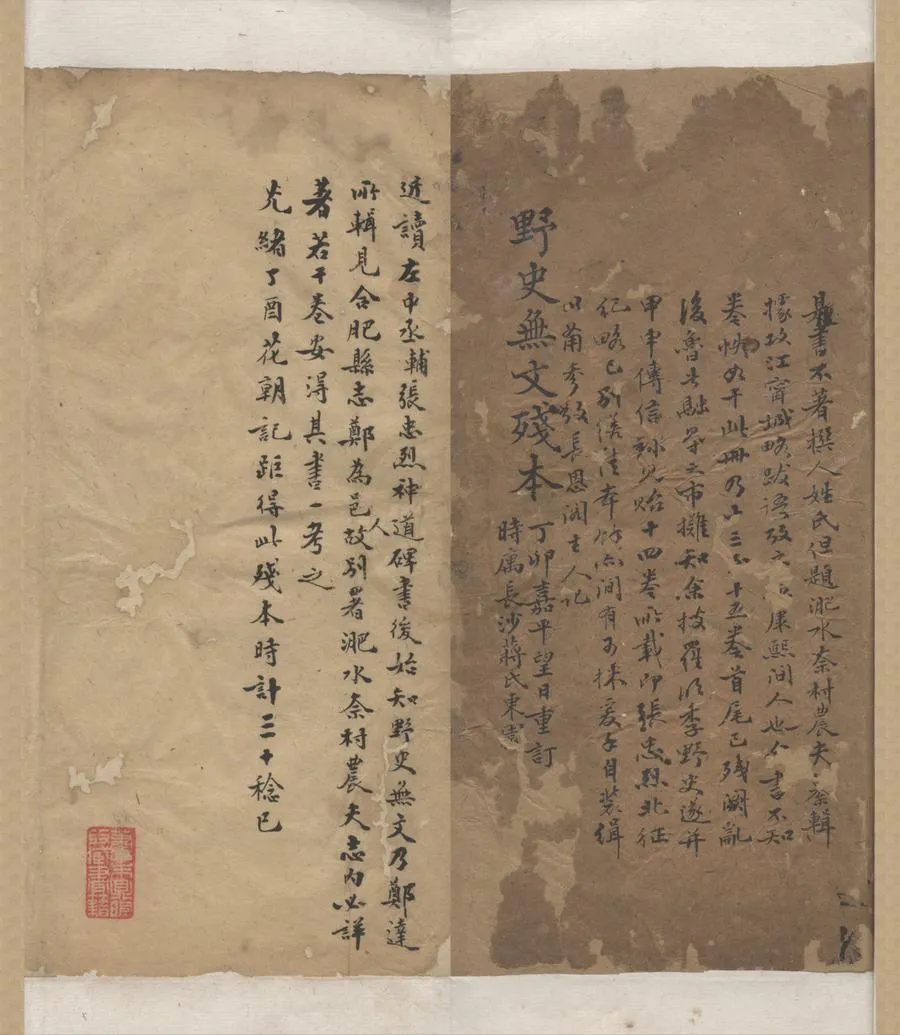 是書不著撰人姓氏但題淝水奈村農夫彙輯
據攷江甯城略跋語攷之亦康熙間人也全書不知
卷帙如干此冊乃止三至十五卷首尾已殘闕亂
後魯生融渠之市攤知余搜羅明季野史遂并
甲申傳信錄見貽十四卷所載即張忠烈北征
紀略已別繕清本餘亦間有可採爰手自裝緝
以備參攷長恩閣主人記
野史無文殘本
丁卯嘉平望日重訂
時寓長沙蔣氏東園
近讀左中丞輔張忠烈神道碑書後始知野史無文乃鄭達
所輯見合肥縣志鄭為邑人故別署淝水奈村農夫志內必詳
著若干卷安得其書一考之
光緒丁酉花朝記距得此殘本時計三十稔已